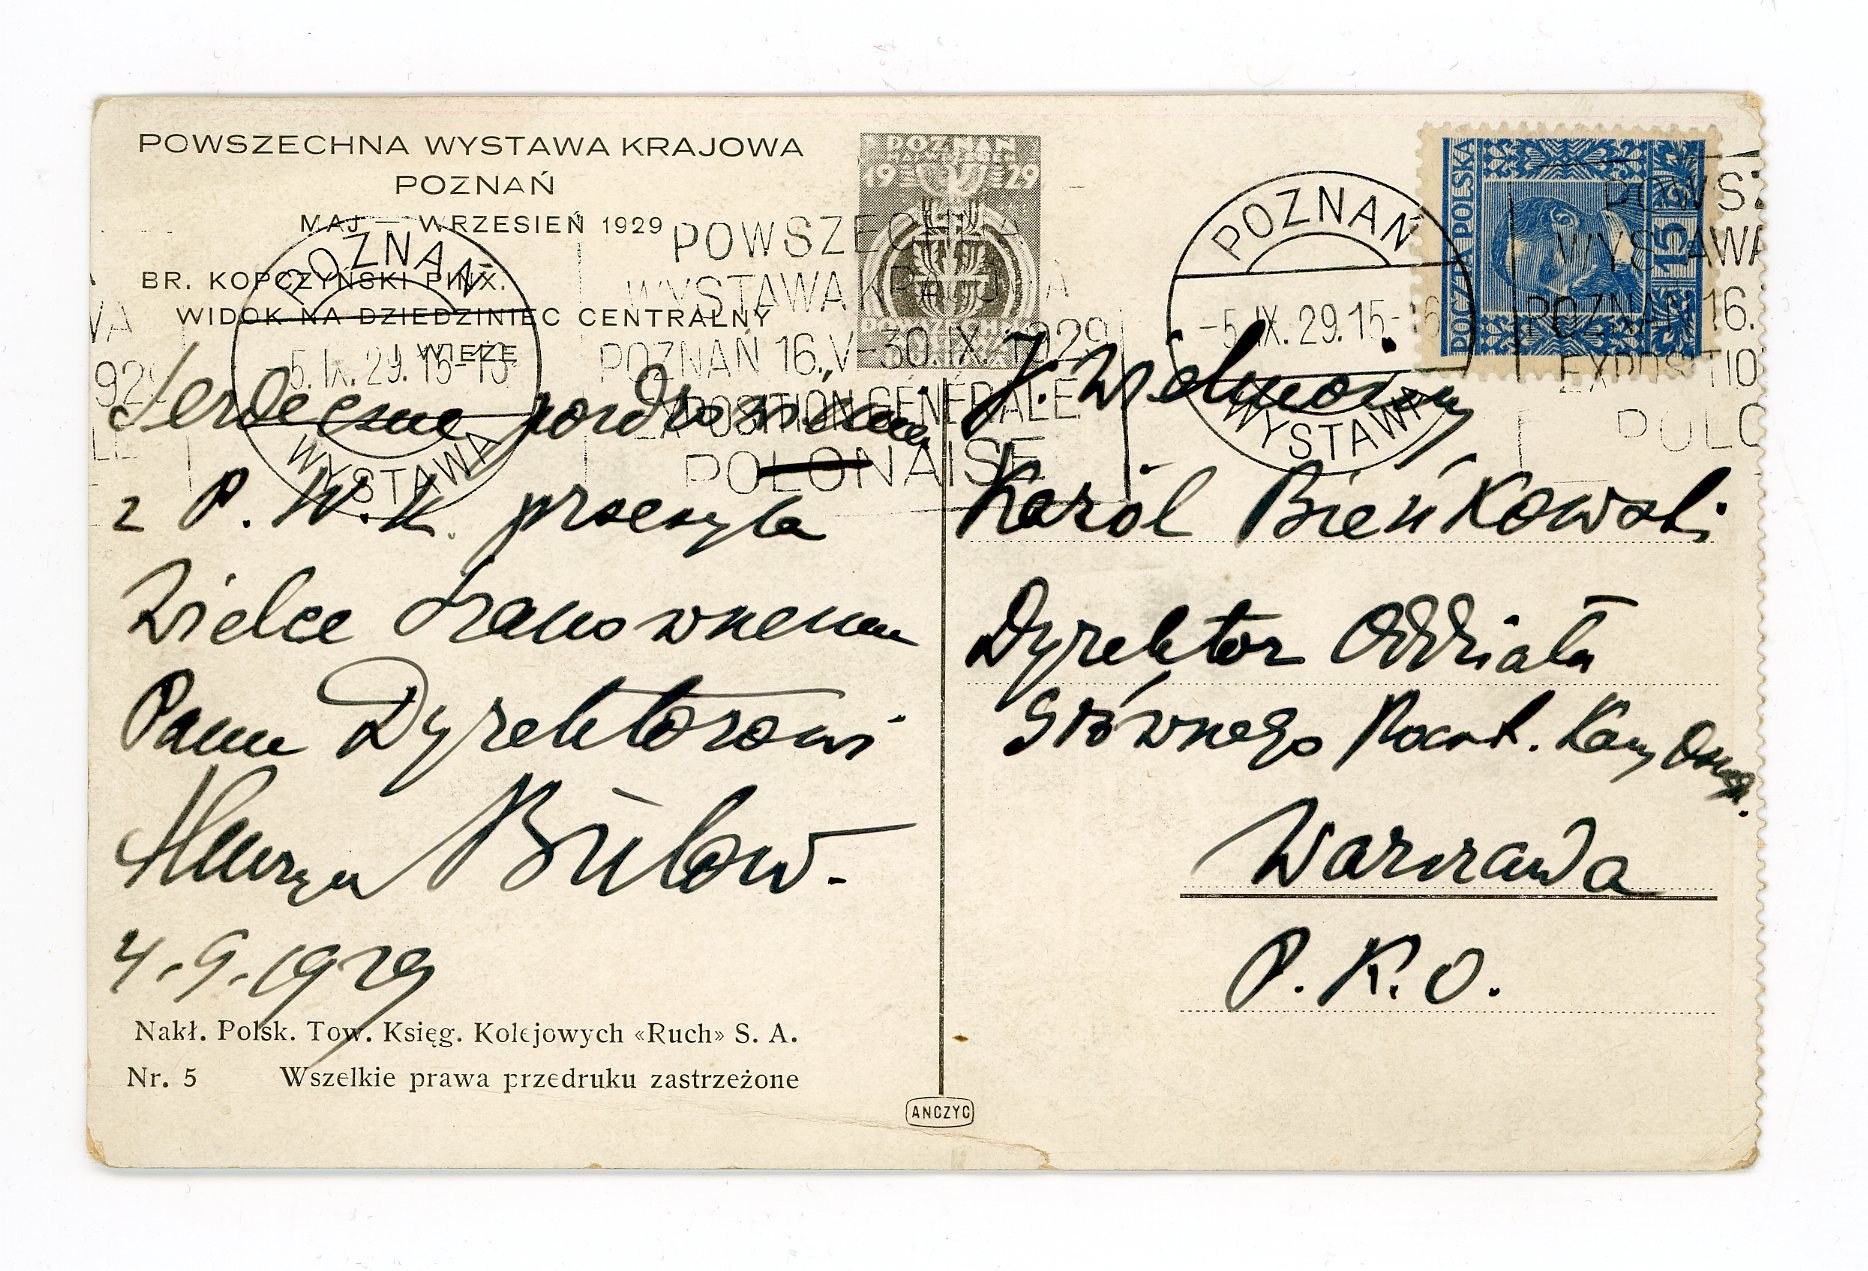 POWSZECHNA WYSTAWA KRAJOWA
POZNAŃ
MAJ — WRZESIEŃ 1929
BR. KOPCZYŃSKI PINX.
WIDOK NA DZIEDZINIEC CENTRALNY
I WIEŻĘ
Serdeczne pozdrowienia
z P. W. K. przesyła
Wielce Szanownemu
Panu Dyrektorowi
Bülow.
4.9.1929
Nakł. Polsk. Tow. Księg. Kolejowych «Ruch» S. A.
Nr. 5 Wszelkie prawa przedruku zastrzeżone
ANCZYC
POZNAŃ
MAJ-WRZESIEŃ
1929
POWSZECHNA
WYSTAWA
KRAJOWA
POZNAŃ
5.IX.29.15-
WYSTAWA
POWSZECHNA
WYSTAWA KRAJOWA
POZNAŃ 16.V-30.IX.1929
EXPOSITION GÉNÉRALE
POLONAISE
POZNAŃ
-5.IX.29.15-16
WYSTAWA
POCZTA POLSKA
15
POWSZ
WYSTAWA
POZNAŃ 16.
EXPOSITIO
POLO
J. Wielmożny
Karol Bieńkowski
Dyrektor Oddziału
Głównego
Warszawa
P. K. O.